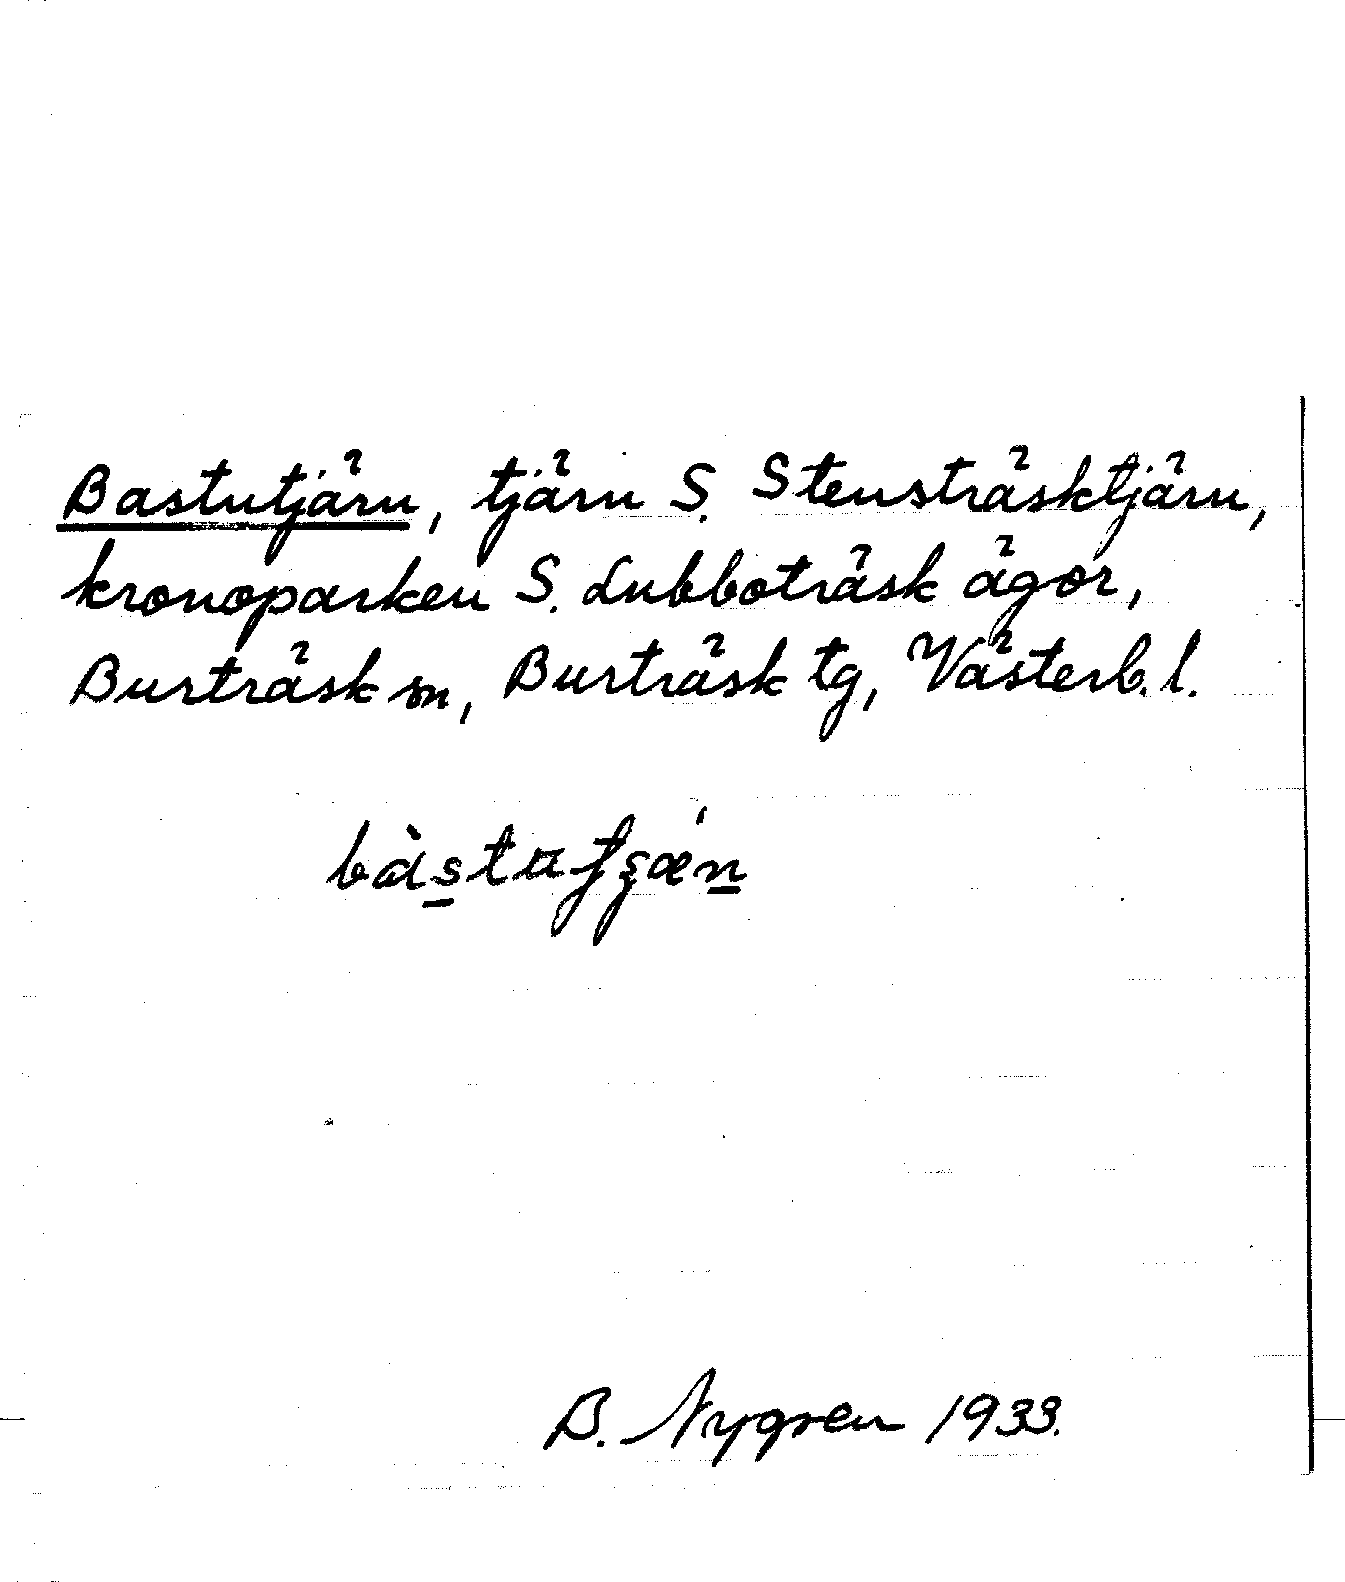 Bastutjärn, tjärn S. Stensträsktjärn,
kronoparken S. Lubboträsk ägor,
Burträsk sn, Burträsk tg, Västerb. l.
B. Nygren 1933.